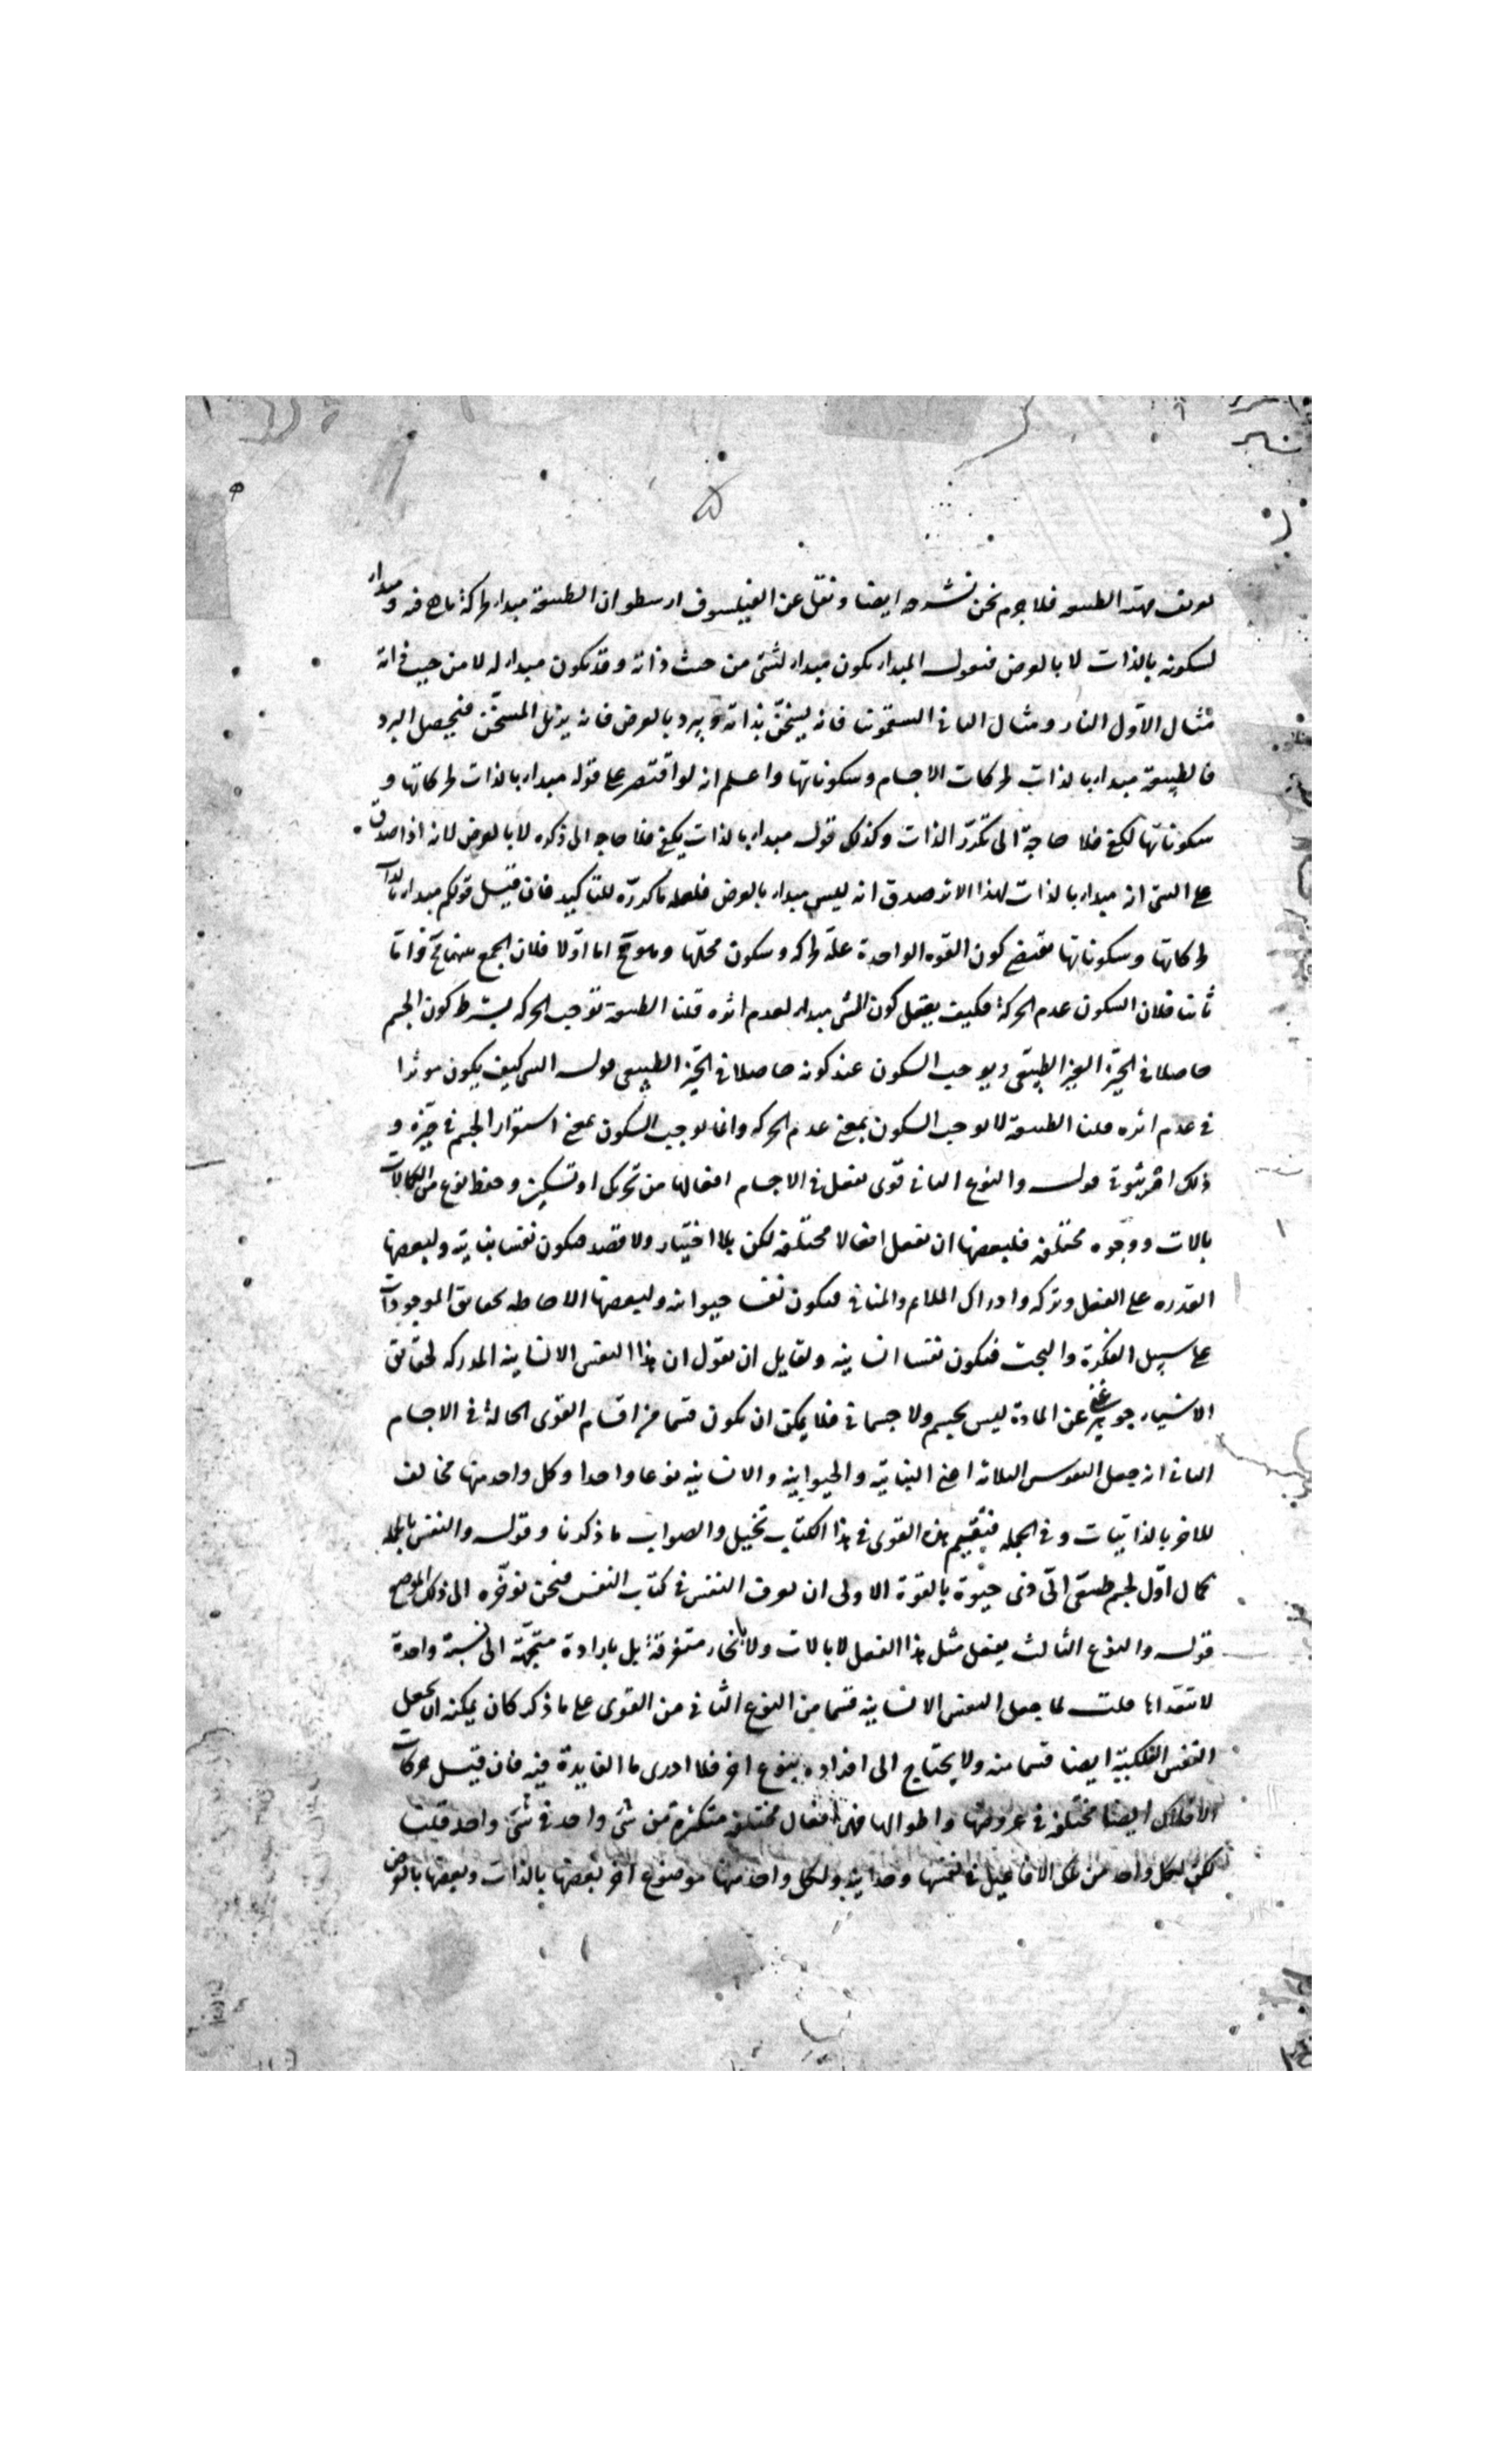 تعريف مهية الطبيعة فلا جرم نحن نشرحه ايضا ونقل عن الفيلسوف ارسطو ان الطبيعة مبداء لحركة ما هى فيه ومبداء
لسكونه بالذات لا بالعرض فنقول المبداء يكون مبداء لشئ من حيث ذاته وقد يكون مبداء له لا من حيث ذاته
مثال الاول النار ومثال الثانى السقمونيا فانه يسخن بذاته ويبرد بالعرض فانه يزيل المسخن فيحصل البرد
فالطبيعة مبداء بالذات لحركات الاجسام وسكوناتها واعلم انه لو اقتصر على قوله مبداء بالذات لحركاتها و
سكوناتها لكفى فلا حاجة الى تكرر الذات وكذلك قوله مبداء بالذات يكفى فلا حاجه الى ذكره لا بالعرض لانه اذا صدق
على الشئ انه مبداء بالذات لهذا الاثر صدق انه ليس مبداء بالعرض فلعله ما كرره للتاكيد فان قيل قولكم مبداء بالذات
لحركاتها وسكوناتها يقتضى كون القوه الواحدة علة لحركه وسكون محلها وهو مح اما اولا فلان الجمع بينهما مح واما
ثانيا فلان السكون عدم الحركة فكيف يعقل كون الشئ مبداء لعدم اثره قلنا الطبيعة توجب الحركه بشرط كون الجسم
حاصلا فى الحيز الغير الطبيعى ويوجب السكون عند كونه حاصلا فى الحيز الطبيعى قوله الشئ كيف يكون موثرا
فى عدم اثره قلنا الطبيعة لا توجب السكون بمعنى عدم الحركه وانما توجب السكون بمعنى استقرار الجسم فى حيزه و
ذلك امر ثبوتى قوله والنوع الثانى قوى تفعل فى الاجسام افعالها من تحريك او تسكين وحفظ نوع من الكمالات
بالات ووجوه مختلفه فلبعضها ان تفعل افعالا مختلفه لكن بلا اختيار ولا قصد فتكون نفسا نباتيه ولبعضها
القدره على الفعل وتركه وادراك الملايم والمنافى فتكون نفسا حيوانيه ولبعضها الاحاطه بحقايق الموجودات
على سبيل الفكرة والبحث فتكون نفسا انسانيه ولقايل ان يقول ان هذا النفس الانسانيه المدركه لحقايق
الاشياء جوهر غنى عن المادة ليس بجسم ولا جسمانى فلا يمكن ان تكون قسما من اقسام القوى الحالة فى الاجسام
الثانى انه جعل النفوس الثلاثه اعنى النباتيه والحيوانيه والانسانيه نوعا واحدا وكل واحد منها مخالف
للاخر بالذاتيات وفى الجمله فتقسيم هذه القوى فى هذا الكتاب تخييل والصواب ما ذكرنا وقوله والنفس بالجمله
كمال اول لجسم طبيعى الى ذى حيوة بالقوة الاولى ان نعرف النفس فى كتاب النفس فنحن نوخره الى ذلك الموضع
قوله والنوع الثالث يفعل مثل هذا الفعل لا بالات ولا بانحاء متفرقة بل بارادة متجهة الى نسبة واحدة
لا تتعداها قلت لما جعل النفس الانسانيه قسما من النوع الثانى من القوى على ما ذكر كان يمكنه ان يجعل
النفس الفلكية ايضا قسما منه ولا يحتاج الى افراده بنوع اخر فلا ادرى ما الفايدة فيه فان قيل حركات
الافلاك ايضا مختلفه فى عروضها واطوالها فهى افعال مختلفه متكثرة من شئ واحد فى شئ واحد قلت
لكن لكل واحد من تلك الافاعيل فى نفسها وحدانيه ولكل واحد منها موضوع اخر بعضها بالذات وبعضها بالعرض